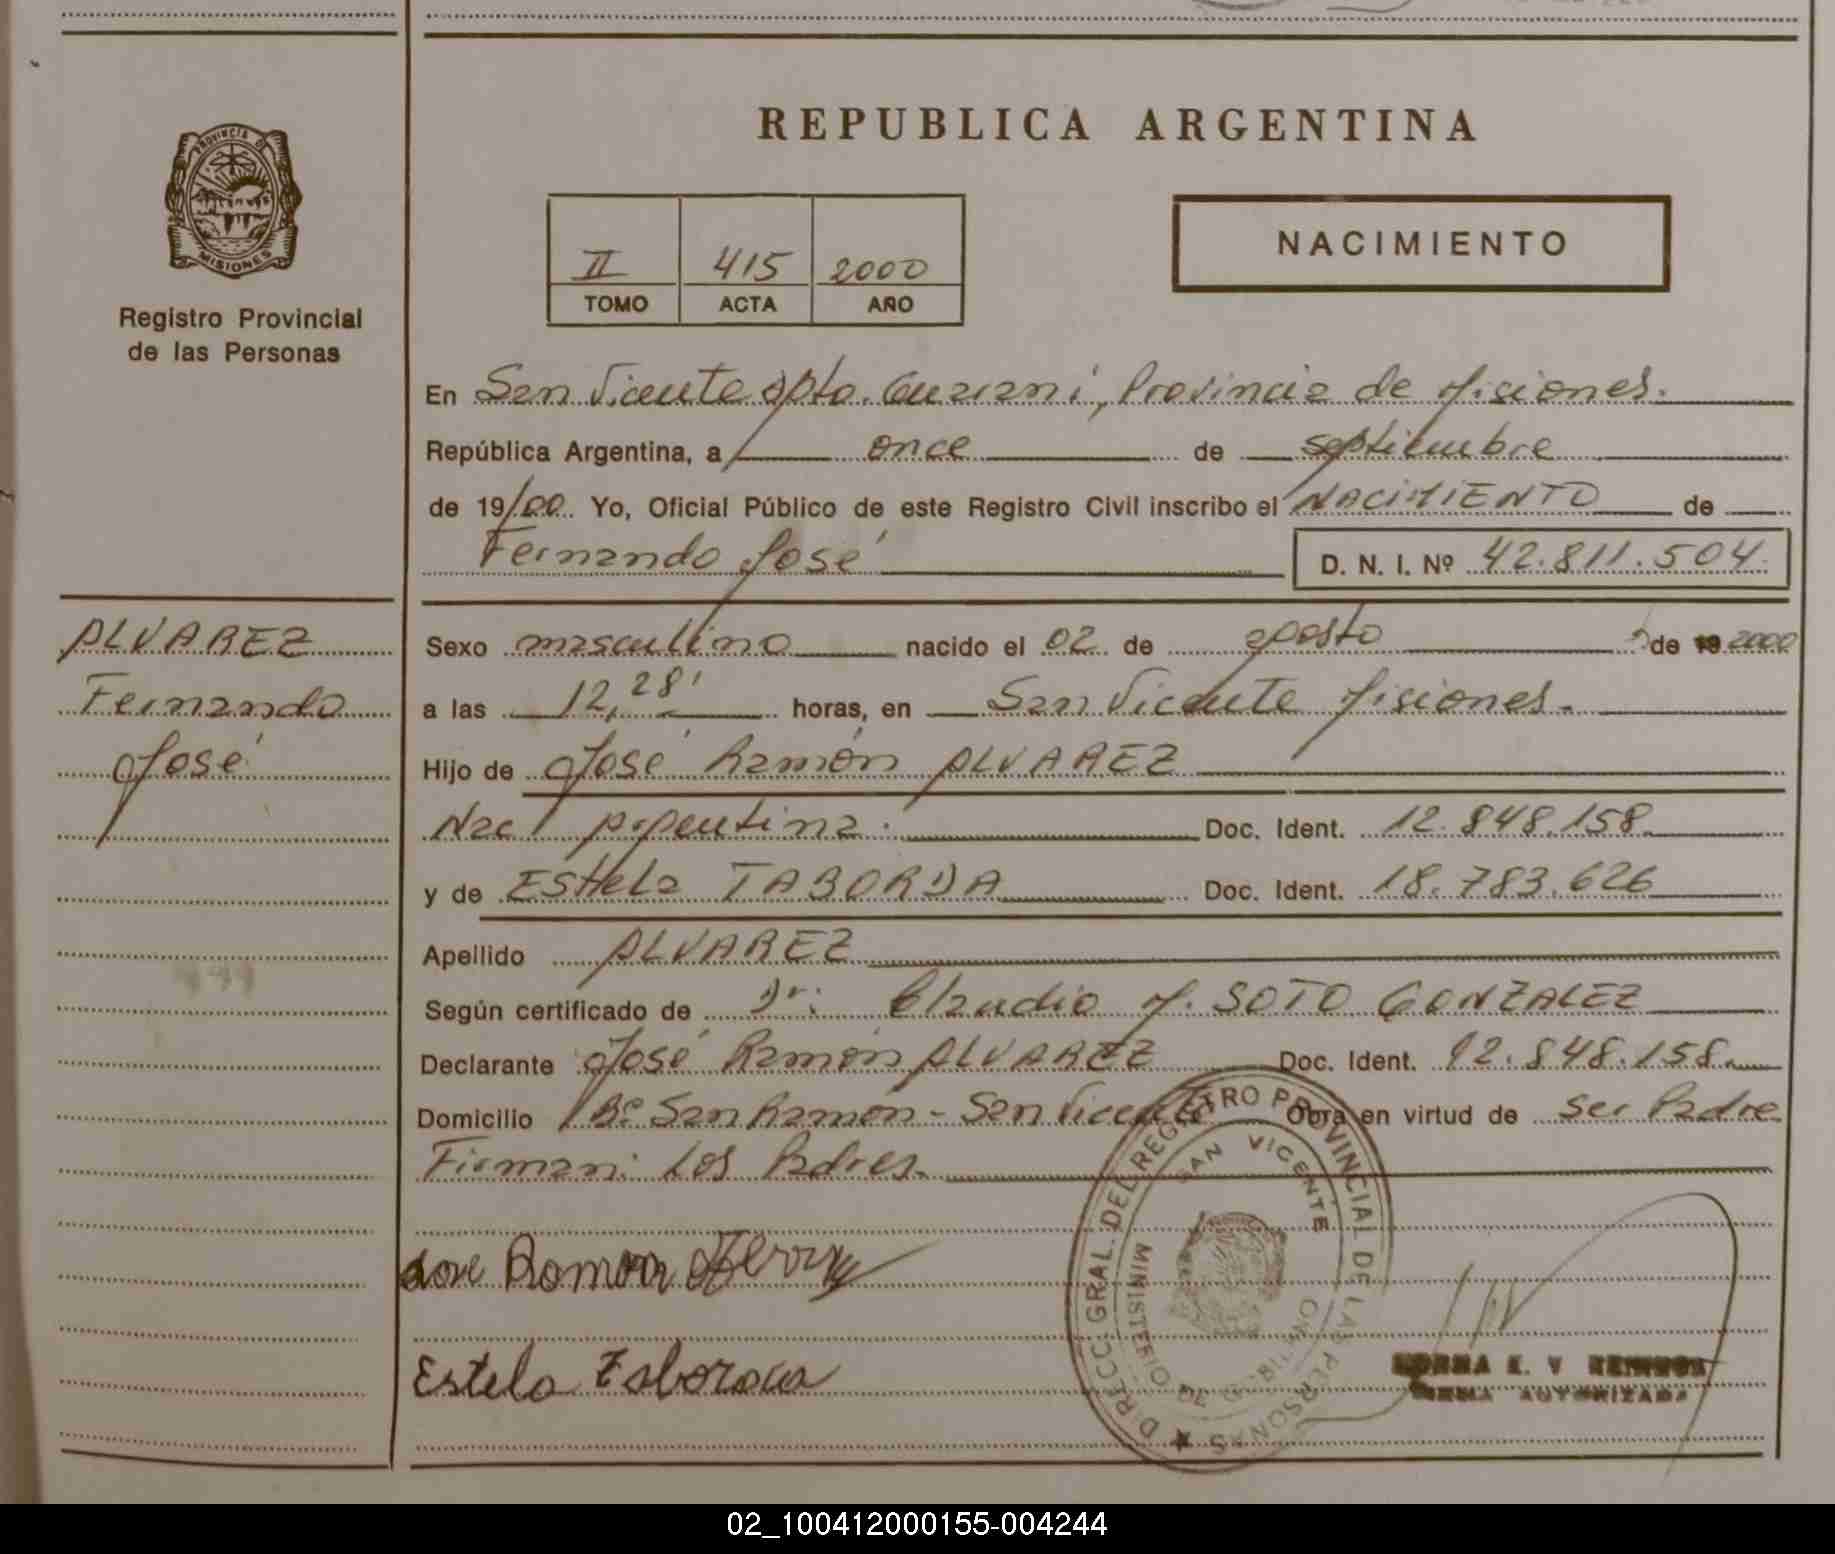 PROVINCIA D
MISIONES
Registro Provincial
de las Personas
REPUBLICA ARGENTINA
II 415 2000
TOMO ACTA AÑO
NACIMIENTO
En San Vicente Dpto. Guarani, Provincia de Misiones.
República Argentina, a once de septiembre
de 19/00 Yo, Oficial Público de este Registro Civil inscribo el NACIMIENTO de
Fernando José D. N. I. Nº 42.811.504.
ALVAREZ
Fernando
José
Sexo masculino nacido el 02 de agosto de 2000
a las 12,28' horas, en San Vicente Misiones.
Hijo de José Ramón ALVAREZ
Nac Argentina. Doc. Ident. 12.848.158
y de EStela TABORDA Doc. Ident. 18.783.626
Apellido ALVAREZ
Según certificado de Dr: Claudio M. SOTO GONZALEZ
Declarante José Ramón ALVAREZ Doc. Ident. 12.848.158.
Domicilio Bº San Ramón - San Vicente Obra en virtud de ser Padre
Firman: Los Padres.
José Ramon
Estela Taborda
DIRECC. GRAL. DEL REGISTRO PROVINCIAL DE LAS PERSONAS
SAN VICENTE
MINISTERIO DE
NORMA E. V
FIRMA AUTORIZADA
02_100412000155-004244